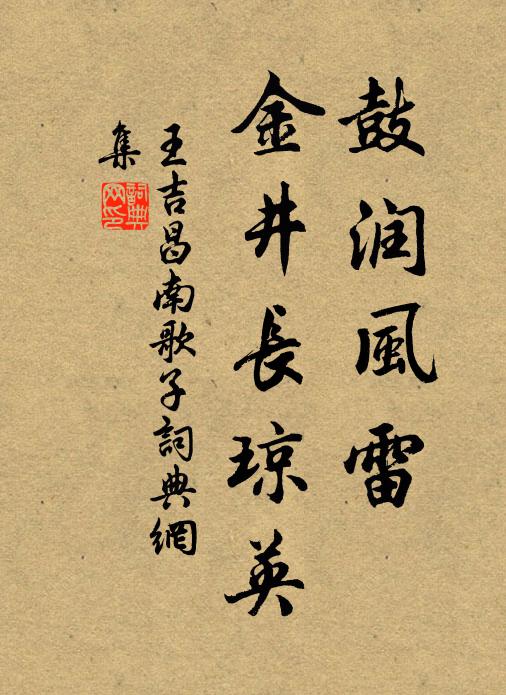 鼓润風雷
金井長琼英
王吉昌南歌子詞典網
集
詞典
网印